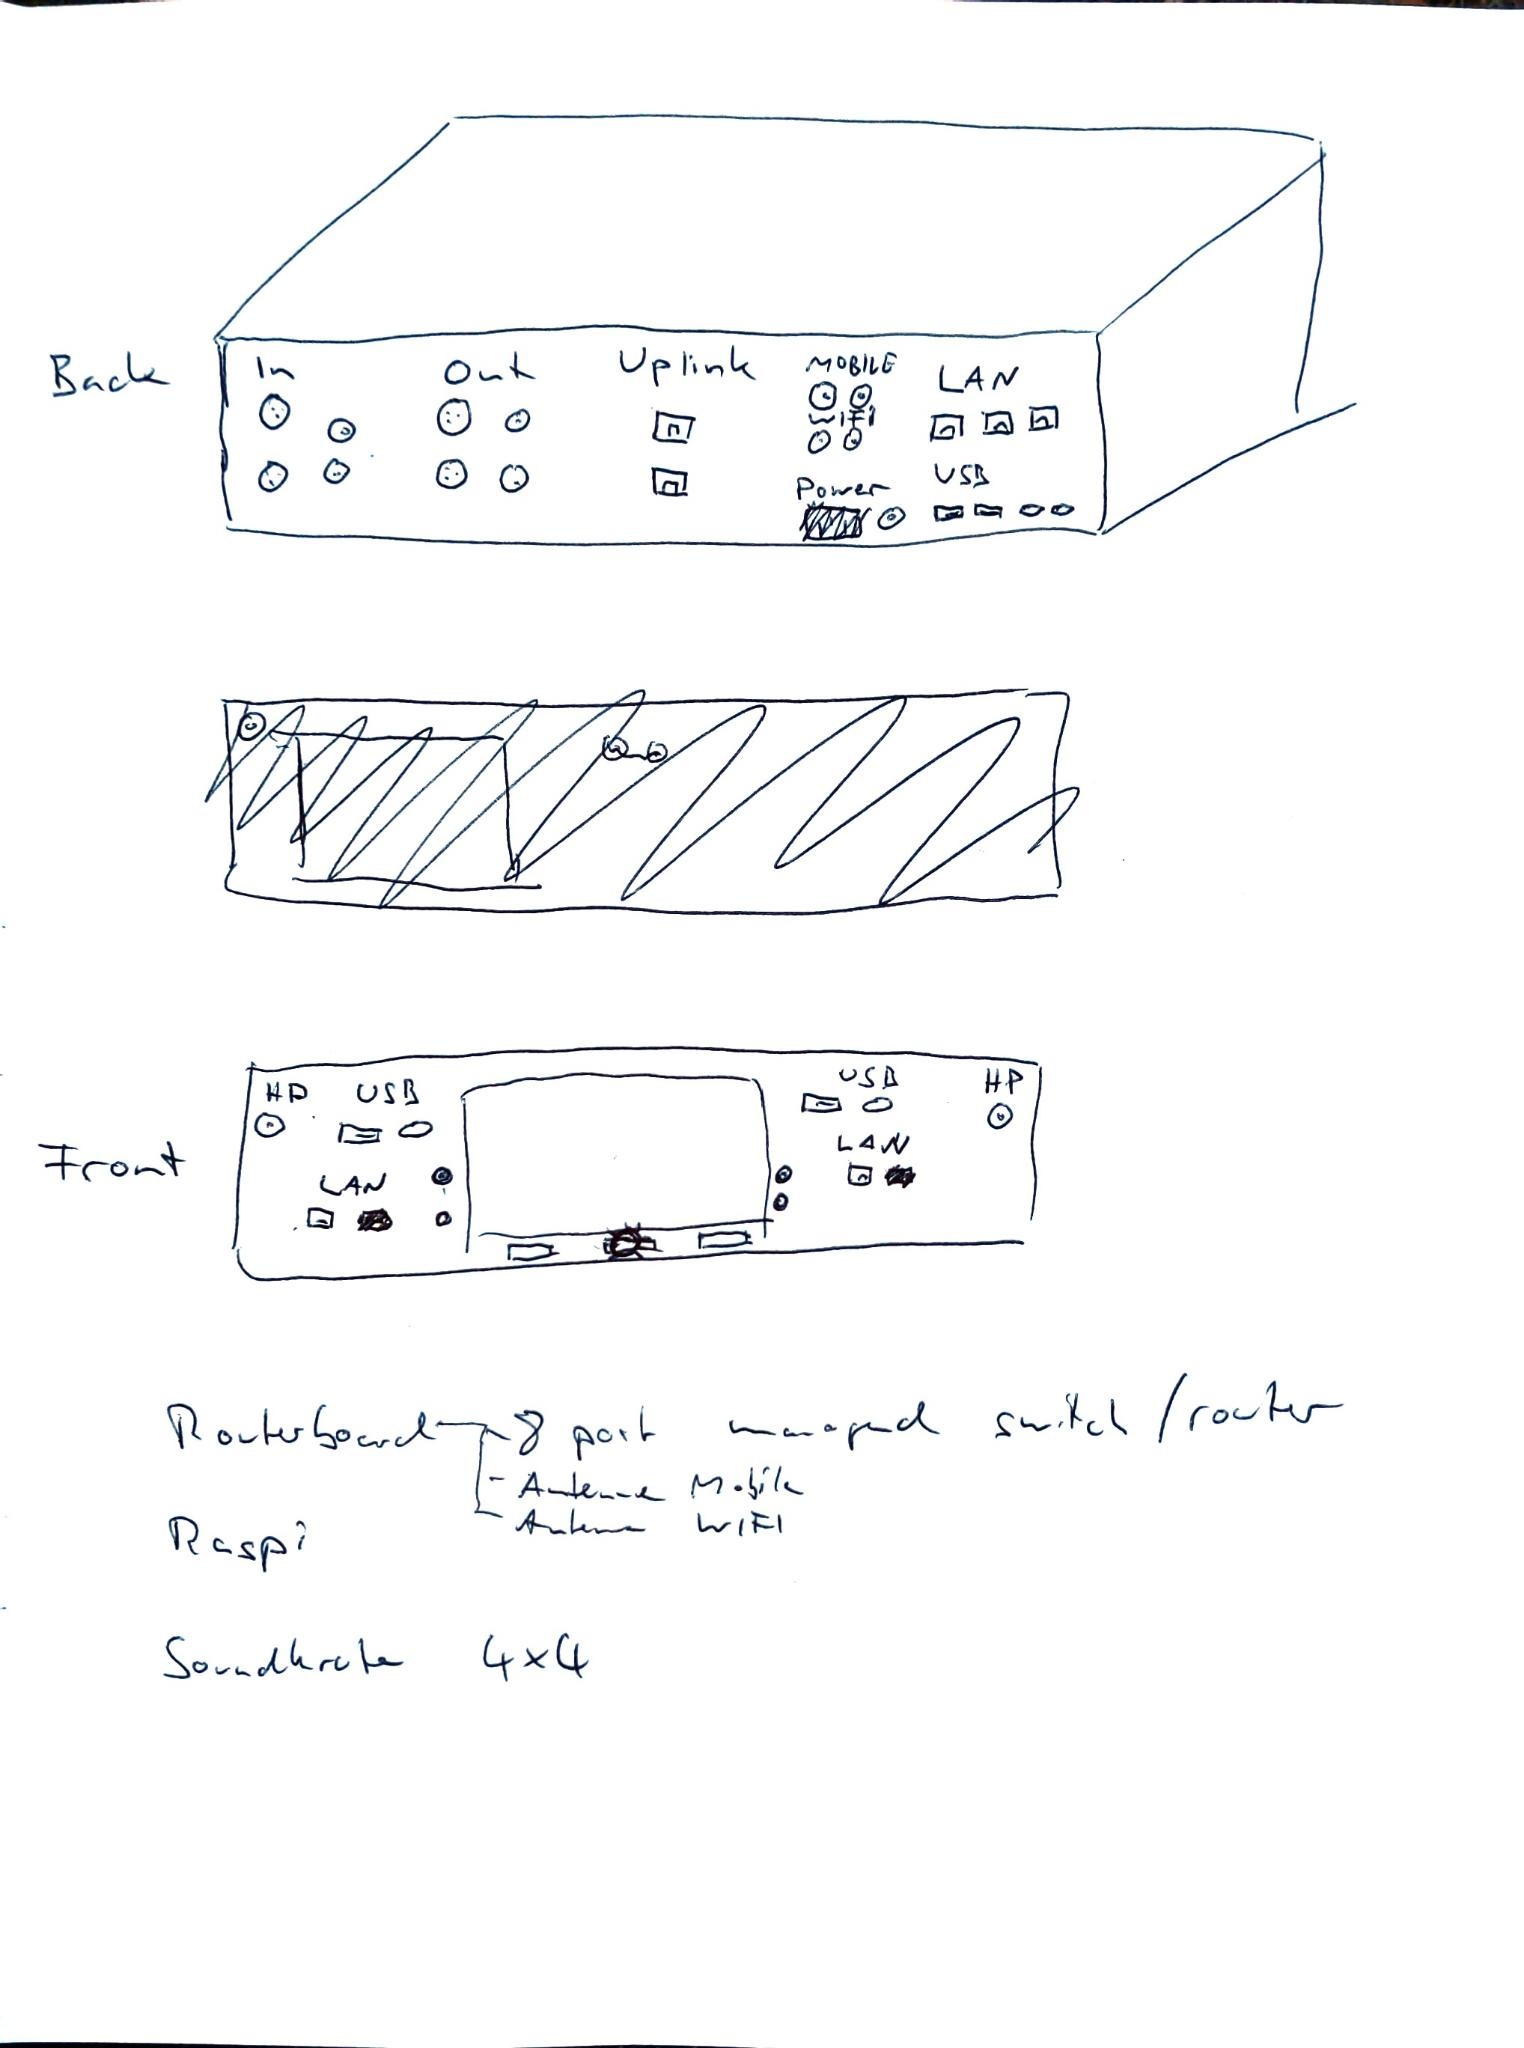 Back
In Out Uplink MOBILE LAN
WIFI
Power USB
HP USB USB HP
LAN
Front LAN
Routerboard 8 port managed switch/router
- Antenne Mobile
- Antenne WIFI
Raspi
Soundkarte 4x4